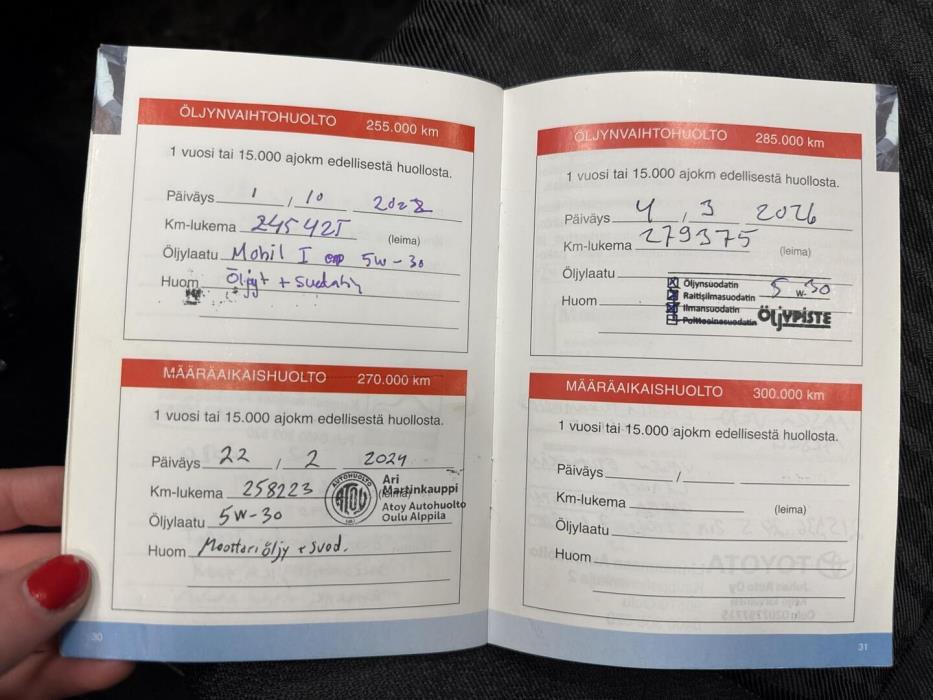 ÖLJYNVAIHTOHUOLTO 255.000 km
1 vuosi tai 15.000 ajokm edellisestä huollosta.
Päiväys 1 / 10 2022
Km-lukema 245421
(leima)
Öljylaatu Mobil 1 5w-30
Huom. Öljyt + suodatin
MÄÄRÄAIKAISHUOLTO 270.000 km
1 vuosi tai 15.000 ajokm edellisestä huollosta.
Päiväys 22 / 2 2024
Km-lukema 258223
(leima)
Öljylaatu 5W-30
Huom Moottoriöljy + suod.
AUTOHUOLTO
ATOY
Ari
Martinkauppi
Atoy Autohuolto
Oulu Alppila
30
ÖLJYNVAIHTOHUOLTO 285.000 km
1 vuosi tai 15.000 ajokm edellisestä huollosta.
Päiväys 4 / 3 2026
Km-lukema 279375
(leima)
Öljylaatu
Huom
Öljynsuodatin
Raitisilmasuodatin
Ilmansuodatin
Polttoainesuodatin
5 w-30
ÖLJYPISTE
MÄÄRÄAIKAISHUOLTO 300.000 km
1 vuosi tai 15.000 ajokm edellisestä huollosta.
Päiväys /
Km-lukema
(leima)
Öljylaatu
Huom
TOYOTA
31